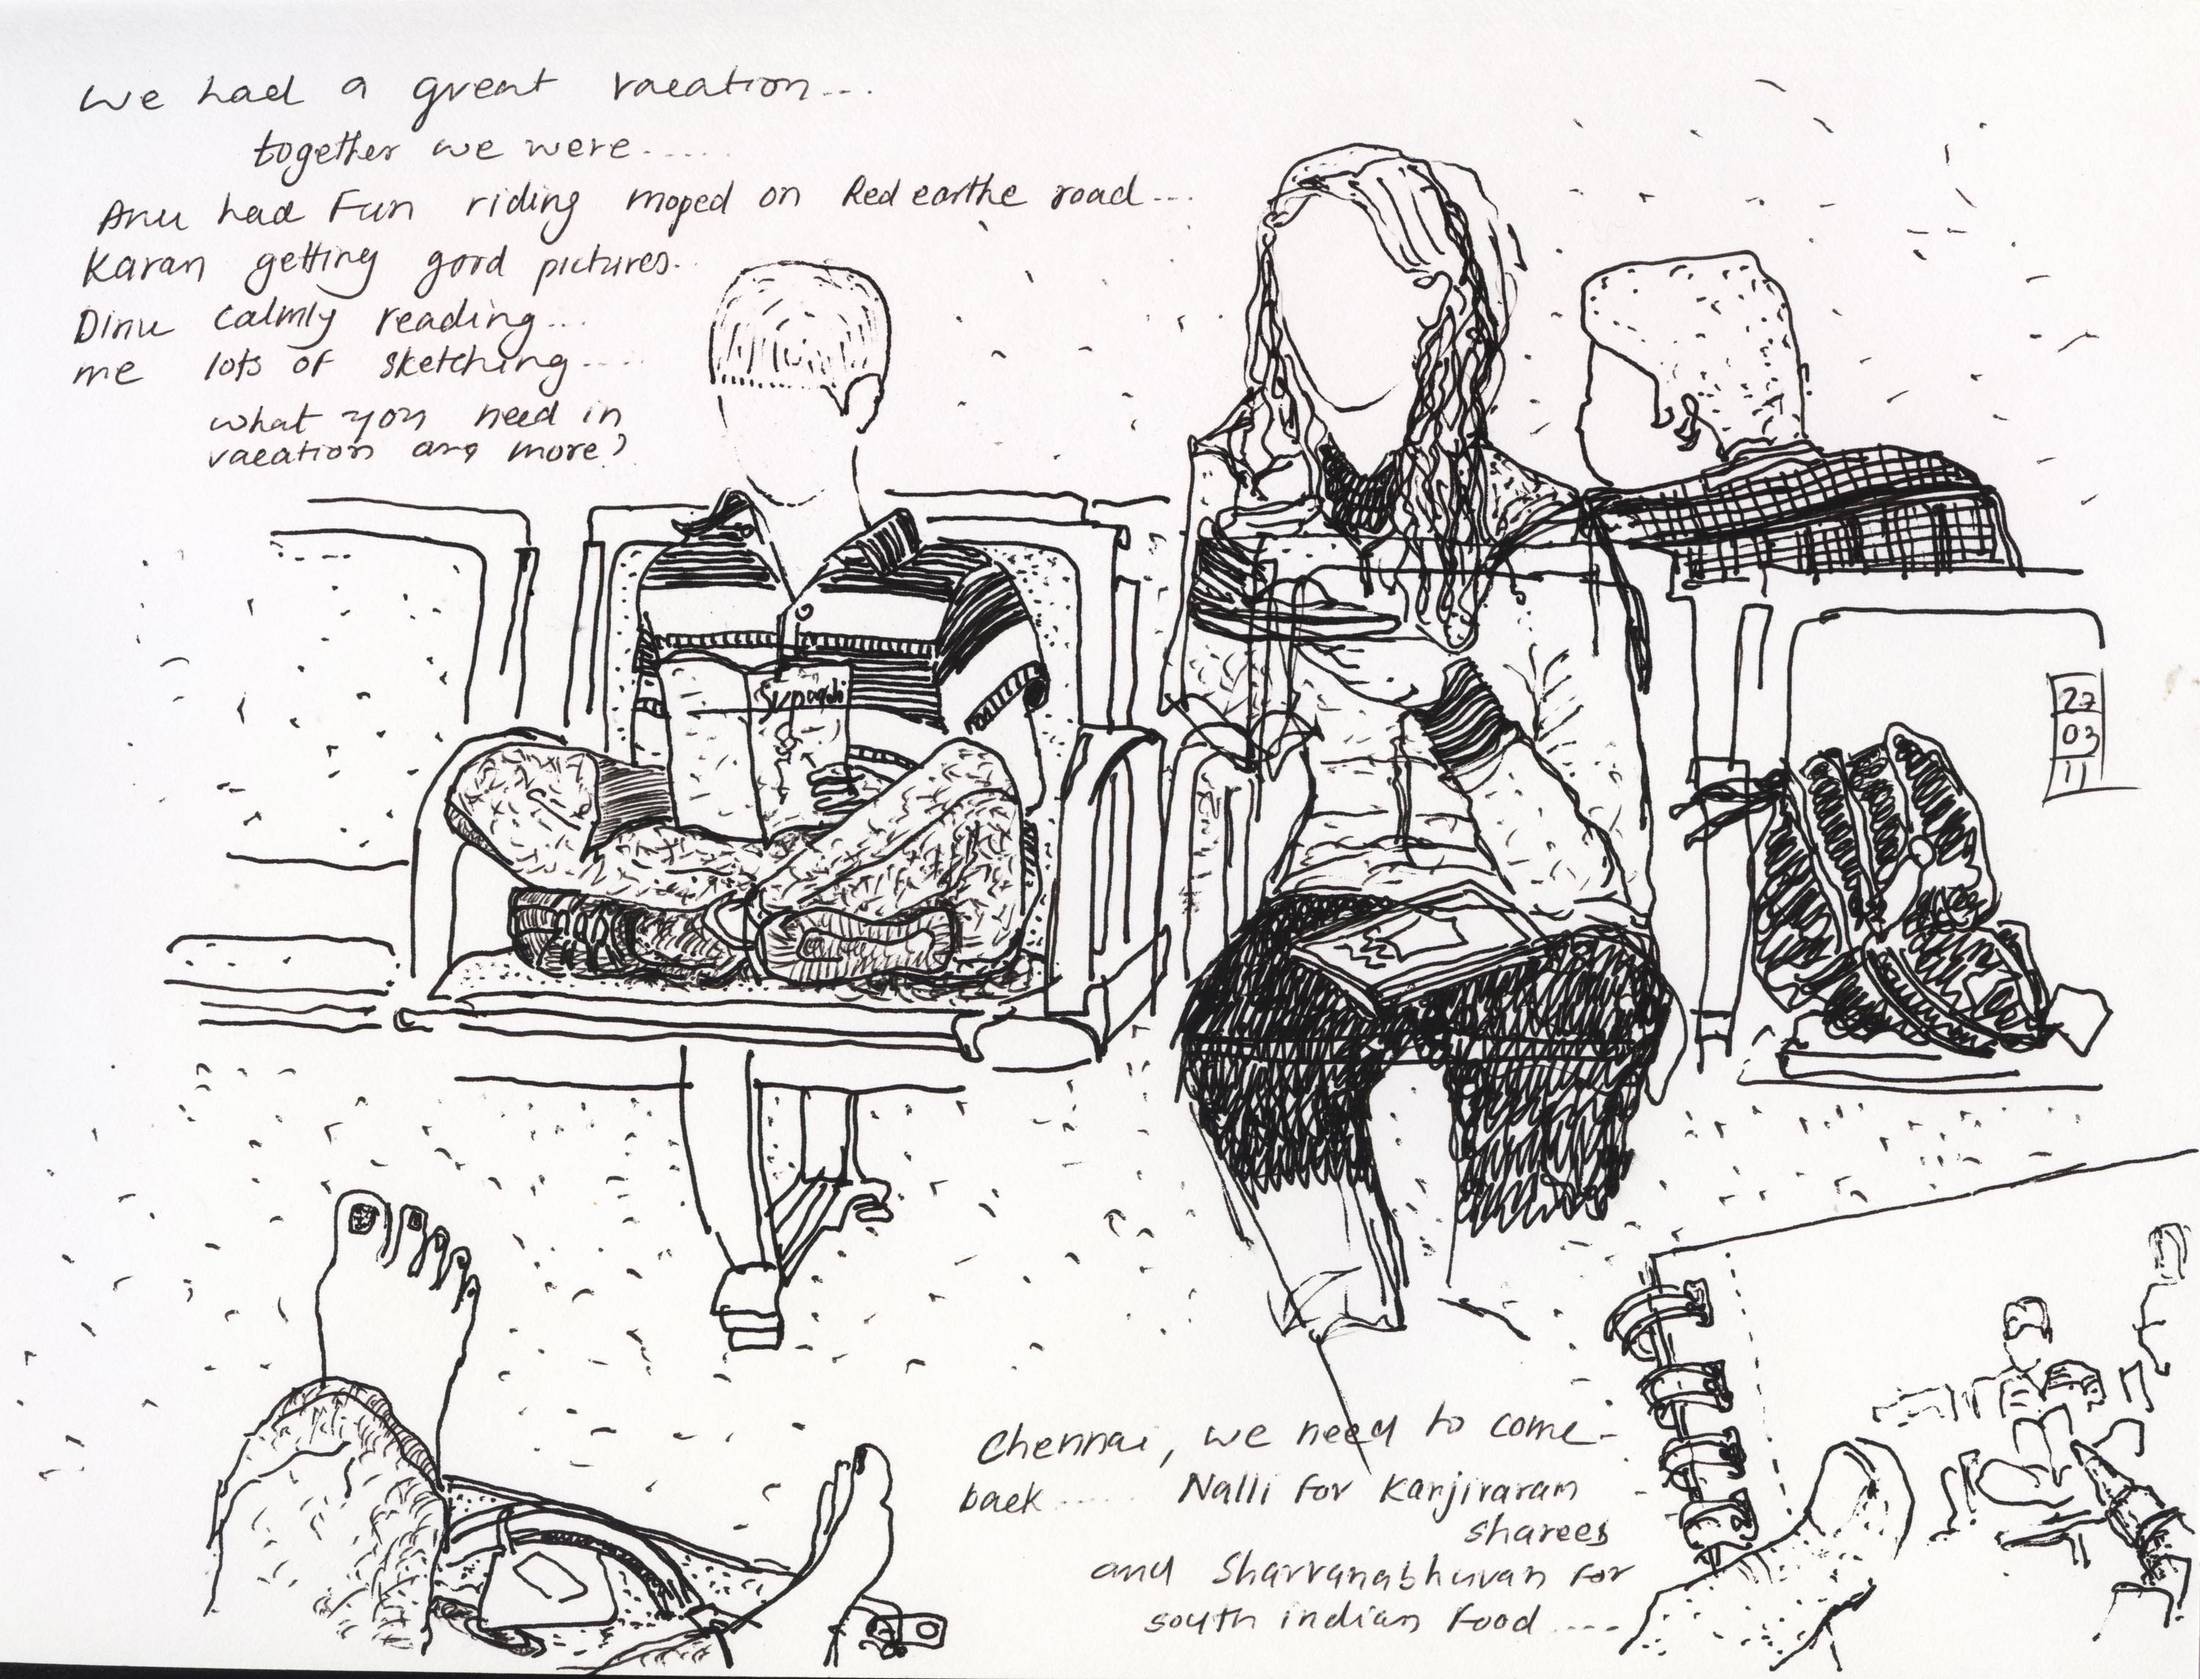 We had a great vacation...
together we were.....
Anu had Fun riding moped on Red earthe road...
Karan getting good pictures..
Dinu calmly reading...
me lots of sketching....
what you need in
vacation any more?
27
03
11
Chennai, we need to come-
back ..... Nalli for Kanjivaram
sharees
and Sharvanabhuvan for
south indian food ....